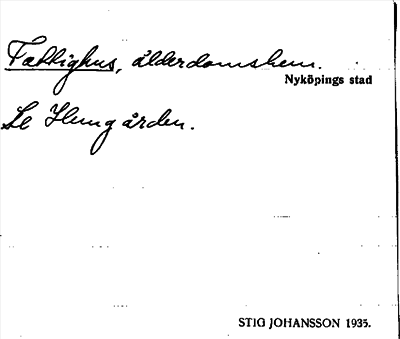 Fattighus, ålderdomshem.
Nyköpings stad
Se Hemgården.
STIG JOHANSSON 1935.